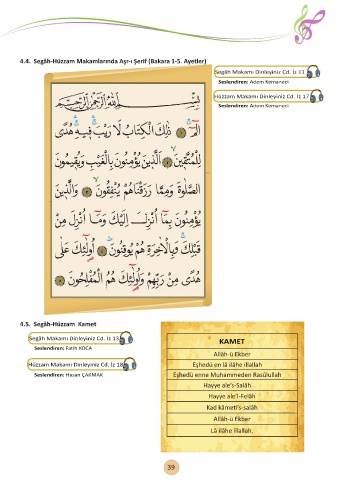 4.4. Segâh-Hüzzam Makamlarında Aşr-ı Şerif (Bakara 1-5. Ayetler)
Segâh Makamı Dinleyiniz Cd. İz 11
Seslendiren: Adem Kemaneci
Hüzzam Makamı Dinleyiniz Cd. İz 17
Seslendiren: Adem Kemaneci
بِسْمِ اللهِ الرَّحْمٰنِ الرَّحِيمِ
الٓمٓ ۝ ذٰلِكَ الْكِتَابُ لَا رَيْبَ فِيهِ هُدًى
لِلْمُتَّقِينَ ۝ الَّذِينَ يُؤْمِنُونَ بِالْغَيْبِ وَيُقِيمُونَ
الصَّلٰوةَ وَمِمَّا رَزَقْنَاهُمْ يُنْفِقُونَ ۝ وَالَّذِينَ
يُؤْمِنُونَ بِمَا أُنْزِلَ إِلَيْكَ وَمَا أُنْزِلَ مِنْ
قَبْلِكَ وَبِالْاٰخِرَةِ هُمْ يُوقِنُونَ ۝ أُولٰئِكَ عَلٰى
هُدًى مِنْ رَبِّهِمْ وَأُولٰئِكَ هُمُ الْمُفْلِحُونَ ۝
4.5. Segâh-Hüzzam Kamet
Segâh Makamı Dinleyiniz Cd. İz 13
Seslendiren: Fatih KOCA
Hüzzam Makamı Dinleyiniz Cd. İz 18
Seslendiren: Hasan ÇAKMAK
KAMET
Allâh-ü Ekber
Eşhedü en lâ ilâhe illallah
Eşhedü enne Muhammeden Rasûlullah
Hayye ale's-Salâh
Hayye ale'l-Felâh
Kad kâmeti's-salâh
Allâh-ü Ekber
Lâ ilâhe illallah.
39